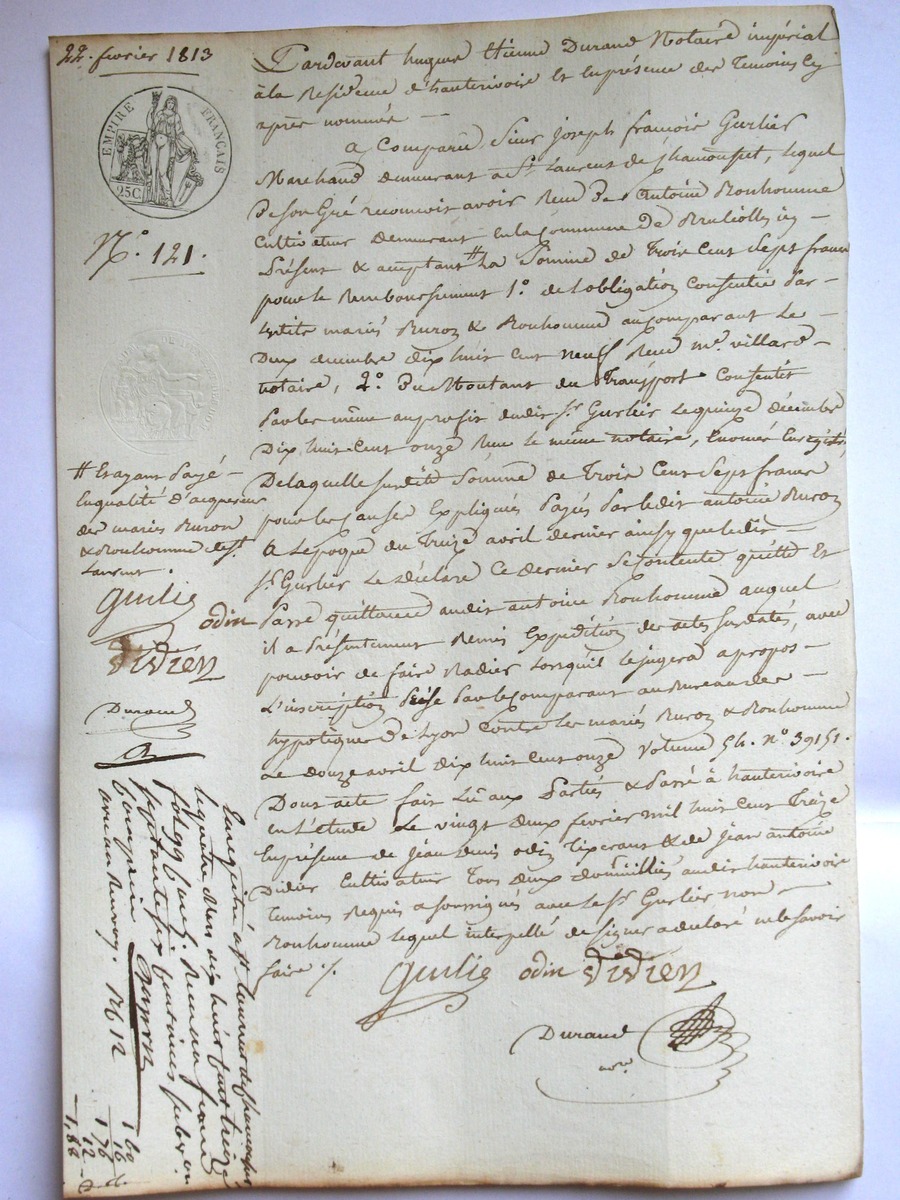 22. fevrier 1813
EMPIRE FRANÇAIS
25C
N.º 121.
Pardevant hugues Etienne Durand Notaire impérial
à la Residence d'hauterivoire Et En présence des Temoins Cy
après nommés —
a Comparu Sieur joseph françois Gurlier
Marchand demeurant a St. Laurent de Chamousset, lequel
De son Gré reconnoit avoir Reçu De Antoine Bonhomme
Cultivateur demeurant En la Commune de Brullioles icy —
Présent & aceptant # La Somme de Trois Cent Sept francs
pour le Remboursement 1.º de l'obligation Consentie par —
Les dits mariés Buron & Bonhomme au Comparant Le —
Deux decembre dix huit Cent neuf Reçu m.e villard —
notaire, 2.º Du Montant du Transport Consentit
Par les même au profit dudit Sr. Gurlier Le quinze décembre
Dix huit Cent onze Reçu le même notaire, Enregistré
De laquelle susdite Somme de Trois Cent Sept francs
pour les Causes Expliqués Payés Par ledit antoine Buron
A Lepoque du Treize avril dernier ainsy que ledit —
Sr. Gurlier Le déclare Ce dernier Se Contente quitte Et
Passe quittance audit antoine Bonhomme auquel
il a Présentement Remis Expedition des actes susdatés, avec
pouvoir de faire Radier Lorsquil le jugera a propos —
L'inscription Par le Comparant au Bureau des —
hypotèques de Lyon Contre Les mariés Buron & Bonhomme
Le douze avril dix huit Cent onze Volume 54. nº 39151.
Dont acte fait Lû aux Parties & Passé à hauterivoire
En L'etude Le vingt deux fevrier mil huit Cent Treize
En présence de Jean Denis odin Tixerant & de Jean antoine
Didier Cultivateur Tous deux domiciliés audit hauterivoire
Temoins Requis a soussignés avec Le Sr. Gurlier non —
Bonhomme lequel interpellé de signer a declaré ne le savoir
faire ./.
Gurlie odin Didier
Durand
nore
# Et ayant Payé —
En qualité d'acquereur
des mariés Buron
& Bonhomme de St.
Laurent.
Gurlie odin
Didier
Durand
Enregistré à St Laurent de Chamousset
le quatre Mars dix huit Cent treize
fol. 99 Case 3. Reçu un franc
soixante seize Centimes subvention
Comprise
1 60
16
1 76
12
1,88